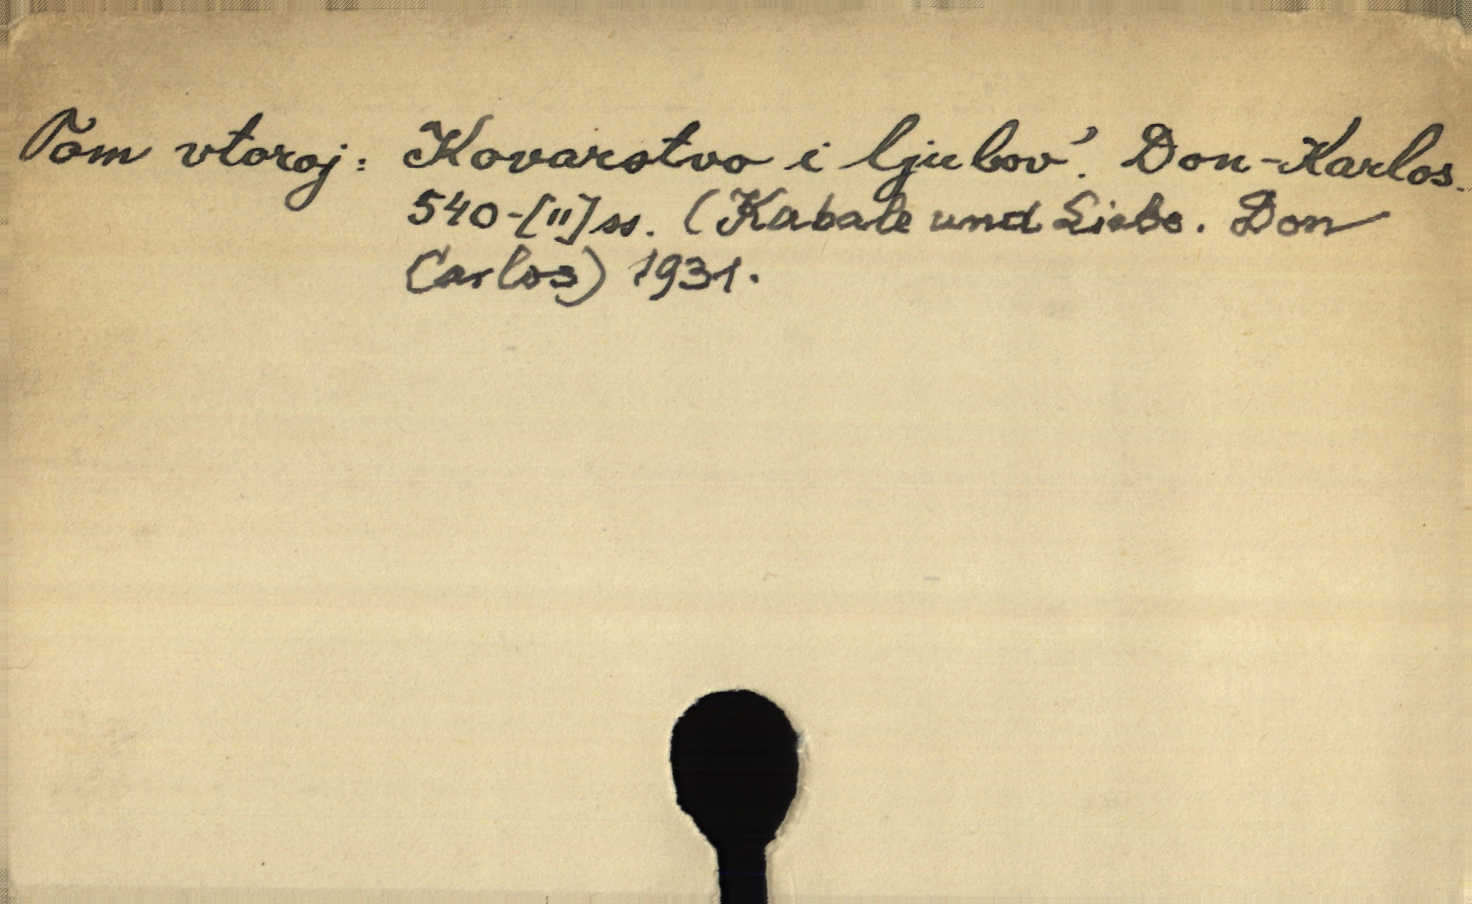 Tom vtoroj: Kovarstvo i ljubov'. Don-Karlos.
540-["] ss. (Kabale und Liebe. Don
Carlos) 1931.